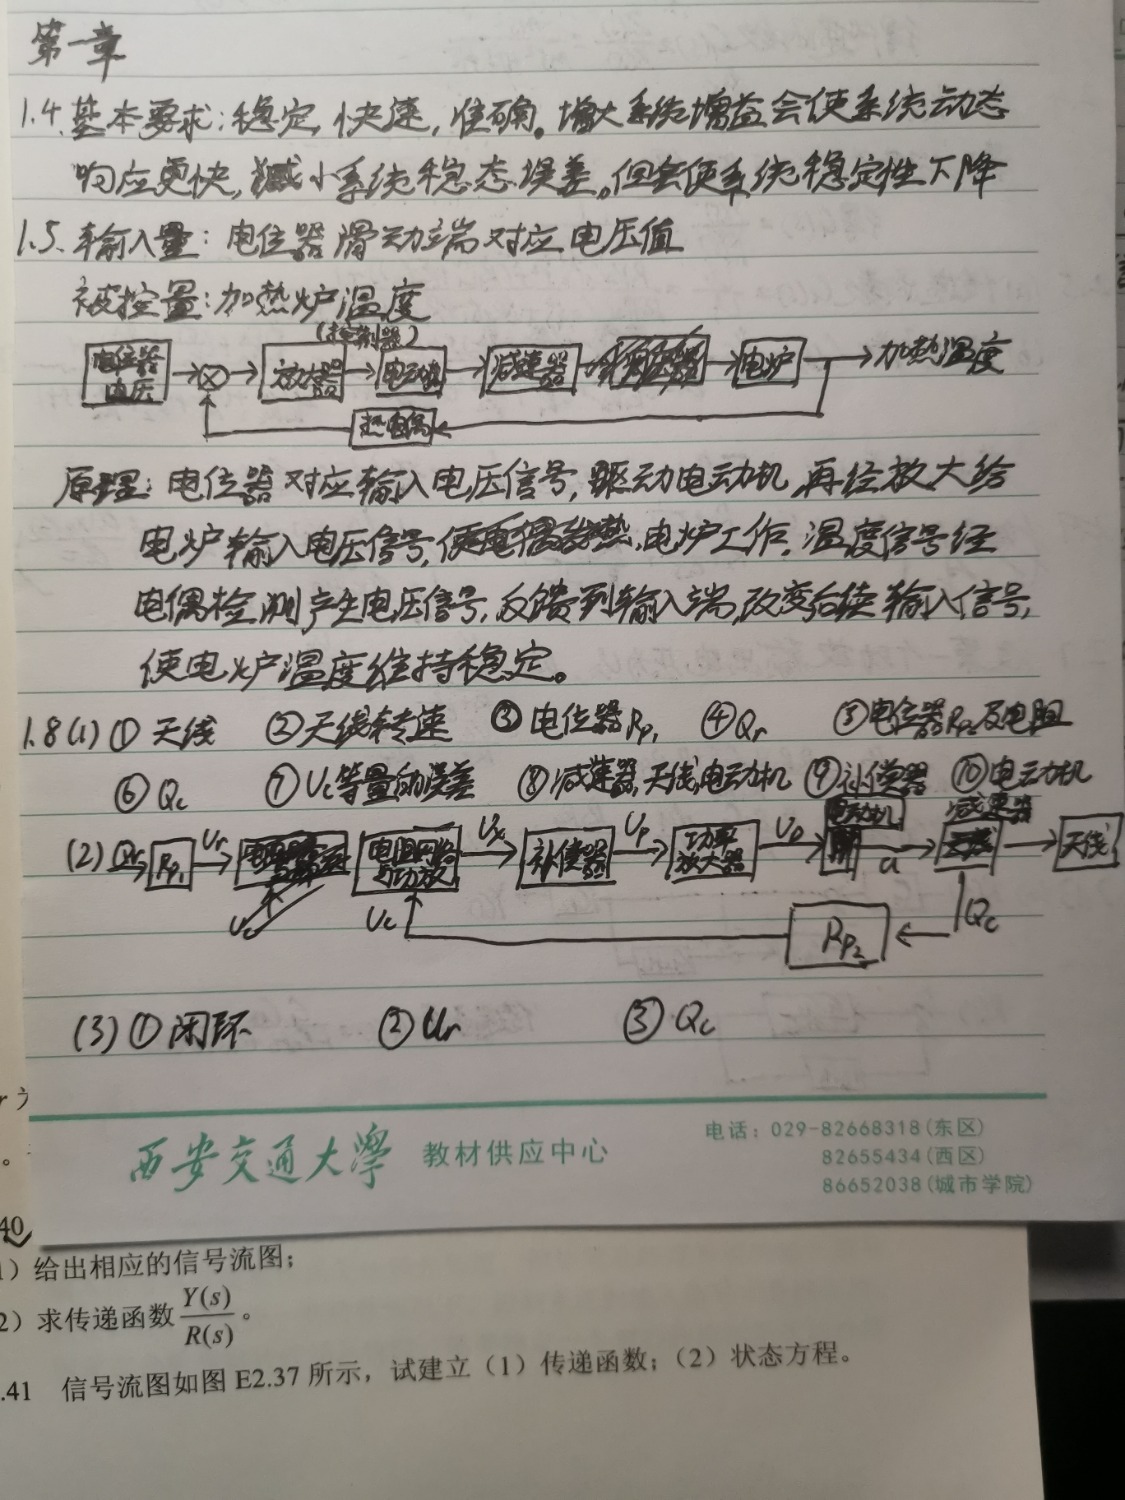 第一章
1.4.基本要求:稳定,快速,准确。增大系统增益会使系统动态
响应更快,减小系统稳态误差。但会使系统稳定性下降
1.5.输入量:电位器滑动端对应电压值
被控量:加热炉温度
(控制器)
电位器电压 放大器 电动机 减速器 电炉 加热温度
热电偶
原理:电位器对应输入电压信号,驱动电动机,再经放大给
电炉输入电压信号,电炉工作,温度信号经
电偶检测产生电压信号,反馈到输入端,改变后续输入信号,
使电炉温度维持稳定。
1.8(1)①天线 ②天线转速 ③电位器Rp1 ④Qr ⑤电位器Rp2及电阻
⑥Qc ⑦Uc等量的误差 ⑧减速器,天线,电动机 ⑨补偿器 ⑩电动机
电动机 减速器
(2)Qr Rp1 Ur 电阻网络与功放 Ux 补偿器 Up 功率放大器 Ud a 天线
Uc Uc Rp2 Qc
(3)①闭环 ②Ur ③Qc
西安交通大学 教材供应中心
电话:029-82668318(东区)
82655434(西区)
86652038(城市学院)
r 为
。
40
1)给出相应的信号流图;
2)求传递函数Y(s)/R(s)。
.41 信号流图如图 E2.37 所示,试建立(1)传递函数;(2)状态方程。